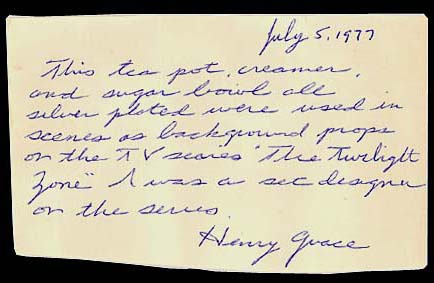 July 5, 1977
This tea pot, creamer,
and sugar bowl all
silver plated were used in
scenes as background props
on the TV scories "The Twilight
Zone" I was a set designer
on the series.
Henry Grace